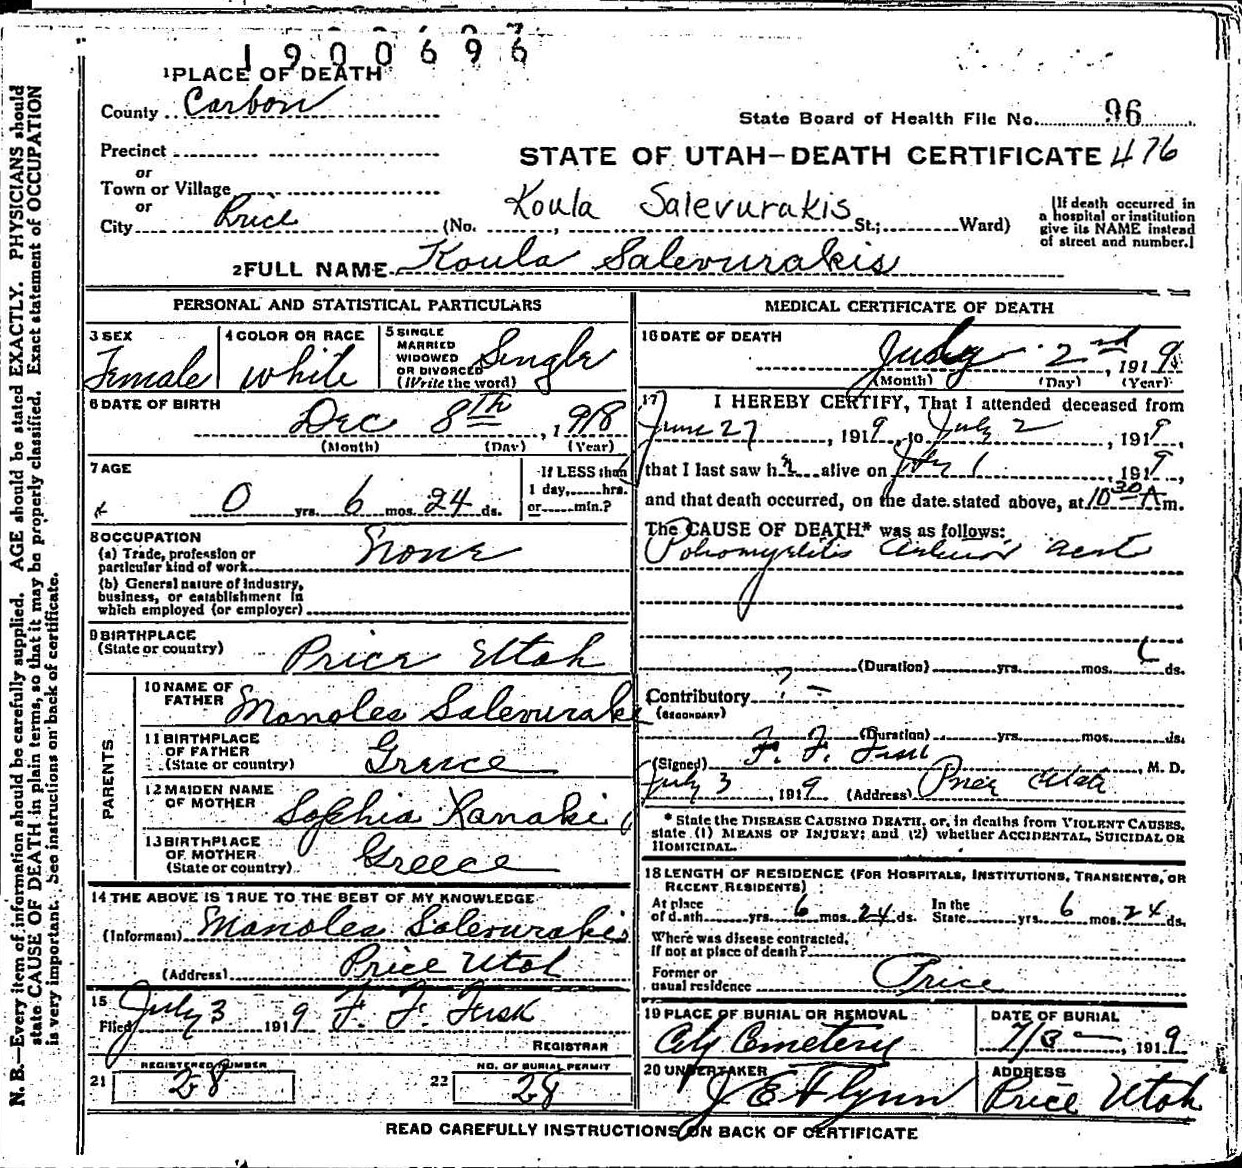 1900696
1 PLACE OF DEATH
County Carbon
State Board of Health File No. 96
Precinct
or
STATE OF UTAH—DEATH CERTIFICATE 476
Town or Village
or
Koula Salevurakis
City Price (No. , St.; Ward)
(If death occurred in a hospital or institution give its NAME instead of street and number.)
2 FULL NAME Koula Salevurakis
PERSONAL AND STATISTICAL PARTICULARS
3 SEX
Female
4 COLOR OR RACE
White
5 SINGLE
MARRIED
WIDOWED
OR DIVORCED
(Write the word)
Single
6 DATE OF BIRTH
Dec 8th, 1918
(Month) (Day) (Year)
7 AGE
0 yrs. 6 mos. 24 ds.
If LESS than
1 day, hrs.
or min.?
8 OCCUPATION
(a) Trade, profession or
particular kind of work None
(b) General nature of industry,
business, or establishment in
which employed (or employer)
9 BIRTHPLACE
(State or country) Price Utah
PARENTS
10 NAME OF
FATHER Manolea Salevuraki
11 BIRTHPLACE
OF FATHER
(State or country) Greece
12 MAIDEN NAME
OF MOTHER Sophia Xanaki
13 BIRTHPLACE
OF MOTHER
(State or country) Greece
14 THE ABOVE IS TRUE TO THE BEST OF MY KNOWLEDGE
(Informant) Manolea Salevurakis
(Address) Price Utah
15
Filed July 3 1919 F. F. Fisk
REGISTRAR
REGISTERED NUMBER
21 28
NO. OF BURIAL PERMIT
22 28
MEDICAL CERTIFICATE OF DEATH
16 DATE OF DEATH
July 2nd, 1919
(Month) (Day) (Year)
17 I HEREBY CERTIFY, That I attended deceased from
June 27, 1919, to July 2, 1919,
that I last saw h alive on July 1, 1919,
and that death occurred, on the date stated above, at 10 30 A m.
The CAUSE OF DEATH* was as follows:
Poliomyelitis Anterior acut
(Duration) yrs. mos. ds.
Contributory ? -
(SECONDARY)
(Duration) yrs. mos. ds.
(Signed) F. F. Fisk, M. D.
July 3, 1919 (Address) Price Utah
* State the DISEASE CAUSING DEATH, or, in deaths from VIOLENT CAUSES,
state (1) MEANS OF INJURY; and (2) whether ACCIDENTAL, SUICIDAL OR
HOMICIDAL.
18 LENGTH OF RESIDENCE (FOR HOSPITALS, INSTITUTIONS, TRANSIENTS, OR
RECENT RESIDENTS)
At place In the
of death yrs. 6 mos. 24 ds. State yrs. 6 mos. 24 ds.
Where was disease contracted,
if not at place of death?
Former or
usual residence Price
19 PLACE OF BURIAL OR REMOVAL
City Cemetery
DATE OF BURIAL
7/3, 1919
20 UNDERTAKER
J E Flynn
ADDRESS
Price Utah
READ CAREFULLY INSTRUCTIONS ON BACK OF CERTIFICATE
N. B.—Every item of information should be carefully supplied. AGE should be stated EXACTLY. PHYSICIANS should
state CAUSE OF DEATH in plain terms, so that it may be properly classified. Exact statement of OCCUPATION
is very important. See instructions on back of certificate.